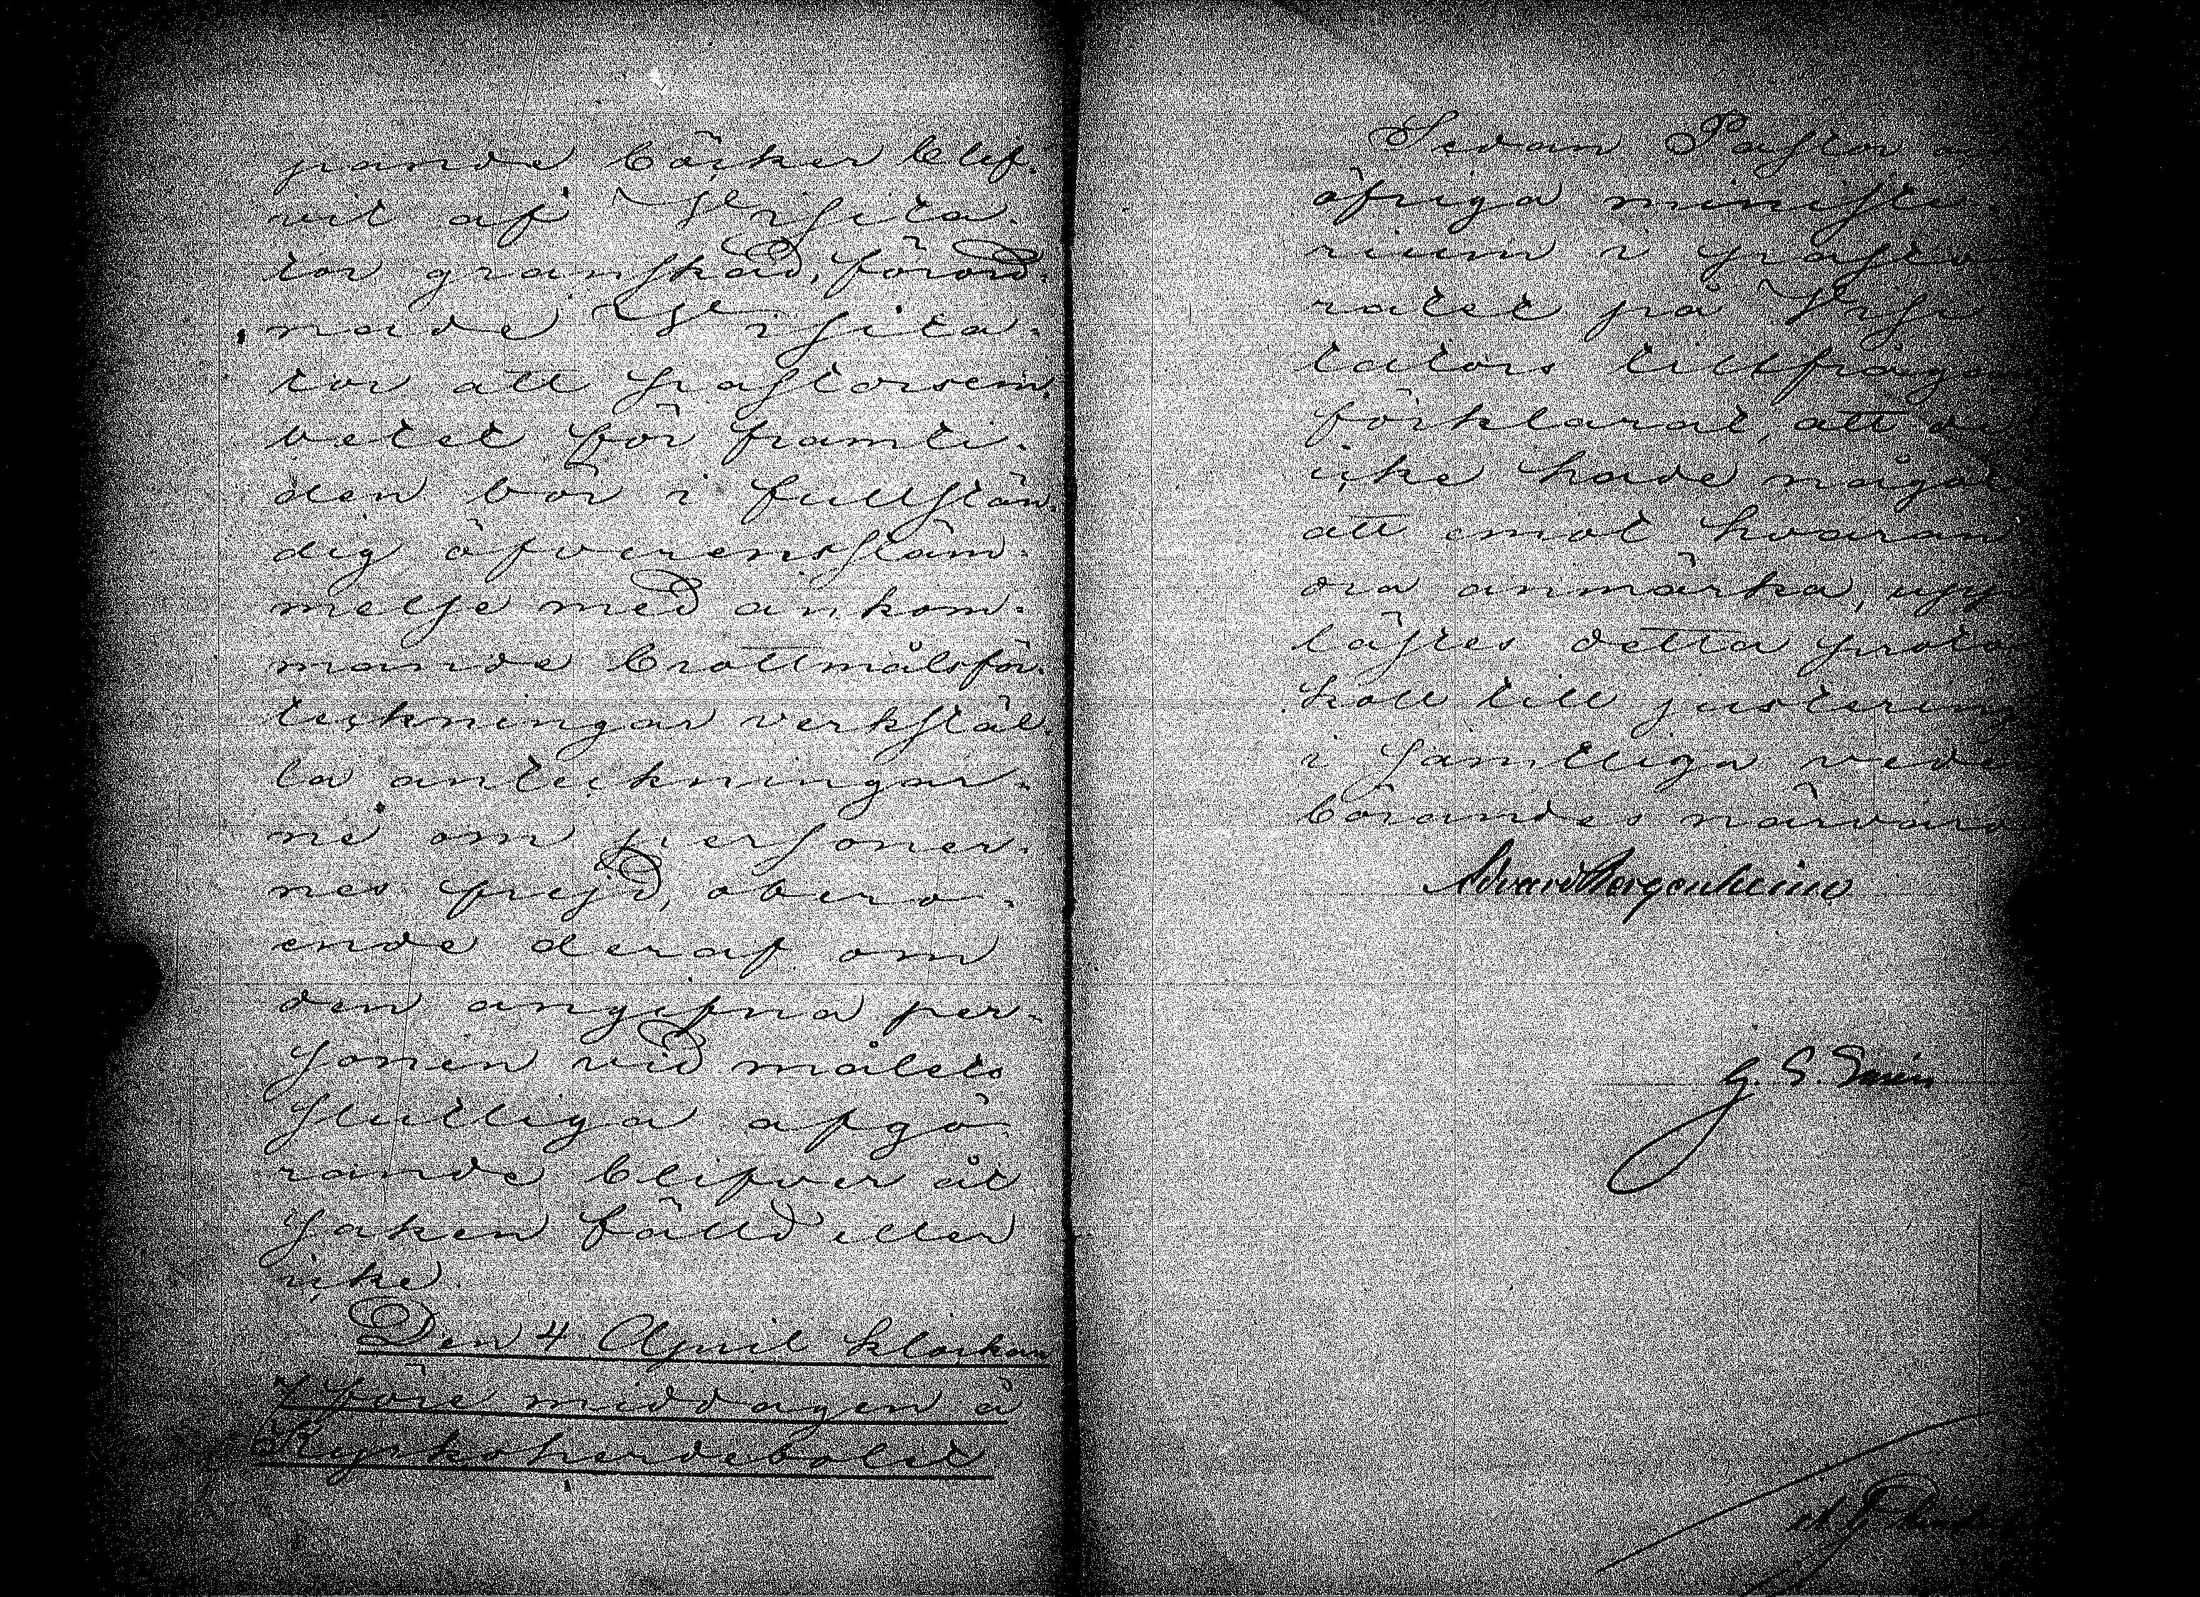 pande böcker blif-
vit af Visita-
tor granskad, förord-
nade Visita-
tor att pastorsem-
betet för framti-
den bör i fullstän-
dig öfverensstäm-
melse med ankom-
mande brottmålsför-
teckningar verkstäl-
la anteckningar-
ne om personer-
nes frejd, obero-
ende deraf om
den angifna per-
sonen vid målets
slutliga afgö-
rande blifver åt
saken fälld eller
icke.
Den 4 April klockan
7 före middagen å
Kyrkoherdebolet
Sedan Pastor
öfriga ministe-
rium i pasto
ratet på Visi
tators tillfrågan
förklarat, att de
icke hade något
att emot hvaran
dra anmärka, upp
lästes detta proto
koll till justering
i samtliga veder
börandes närvaro
Edvard Bergenheim